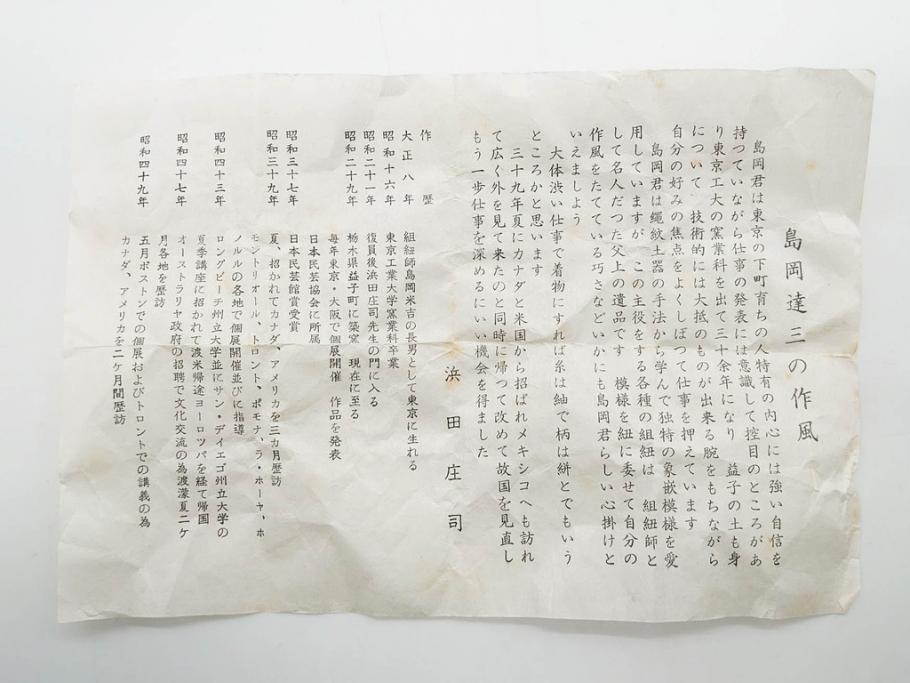 島岡達三の作風
島岡君は東京の下町育ちの人特有の内心には強い自信を
持つていながら仕事の発表には意識して控目のところがあ
り東京工大の窯業科を出て三十余年になり 益子の土も身
について 技術的には大抵のものが出来る腕をもちながら
自分の好みの焦点をよくしぼつて仕事を押えています
島岡君は縄紋土器の手法から学んで独特の象嵌模様を愛
用していますが この主役をする各種の組紐は 組紐師と
して名人だつた父上の遺品です 模様を紐に委せて自分の
作風をたてている巧さなどいかにも島岡君らしい心掛けと
いえましよう
大体渋い仕事で着物にすれば糸は紬で柄は絣とでもいう
ところかと思います
三十九年夏にカナダと米国から招ばれメキシコへも訪れ
て広く外を見て来たのと同時に帰つて改めて故国を見直し
もう一歩仕事を深めるにいい機会を得ました
浜田庄司
作歴
大正八年 組紐師島岡米吉の長男として東京に生れる
昭和十六年 東京工業大学窯業科卒業
昭和二十一年 復員後浜田庄司先生の門に入る
昭和二十九年 栃木県益子町に築窯 現在に至る
毎年東京・大阪で個展開催 作品を発表
日本民芸協会に所属
昭和三十七年 日本民芸館賞受賞
昭和三十九年 夏、招かれてカナダ、アメリカを三カ月歴訪
モントリオール、トロント、ポモナ、ラ・ホーヤ、ホ
ノルルの各地で個展開催並びに指導
昭和四十三年 ロングビーチ州立大学並にサン・デイエゴ州立大学の
夏季講座に招かれて渡米帰途ヨーロツパを経て帰国
昭和四十七年 オーストラリヤ政府の招聘で文化交流の為渡濠夏二ケ
月各地を歴訪
昭和四十九年 五月ボストンでの個展およびトロントでの講義の為
カナダ、アメリカを二ケ月間歴訪